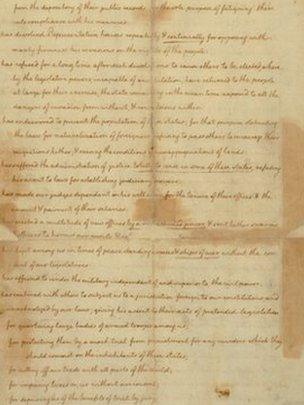 from the depository of their public records, the sole purpose of fatiguing them
into compliance with his measures.
has dissolved Representative houses repeatedly & continually for opposing with
manly firmness his invasions on the rights of the people:
has refused for a long time after such dissolutions to cause others to be elected where
by the legislative powers, incapable of annihilation, have returned to the people
at large for their exercise, the state remaining in the mean time exposed to all the
dangers of invasion from without & convulsions within:
has endeavored to prevent the population of these states; for that purpose obstructing
the laws for naturalization of foreigners refusing to pass others to encourage their
migrations hither & raising the conditions of new appropriations of lands:
has suffered the administration of justice totally to cease in some of these states, refusing
his assent to laws for establishing judiciary powers:
has made our judges dependant on his will alone, for the tenure of their offices, & the
amount & paiment of their salaries:
erected a multitude of new offices by a self-assumed power & sent hither swarms
of
has kept among us in times of peace standing armies & ships of war without the con
sent of our legislatures:
has affected to render the military independant of and superior to the civil power:
has combined with others to subject us to a jurisdiction foreign to our constitutions and
unacknoleged by our laws; giving his assent to their acts of pretended legislation
for quartering large bodies of armed troops among us;
for protecting them by a mock trial from punishment for any murders which they
should commit on the inhabitants of these states;
for cutting off our trade with all parts of the world;
for imposing taxes on us without our consent;
for depriving us of the benefits of trial by jury;